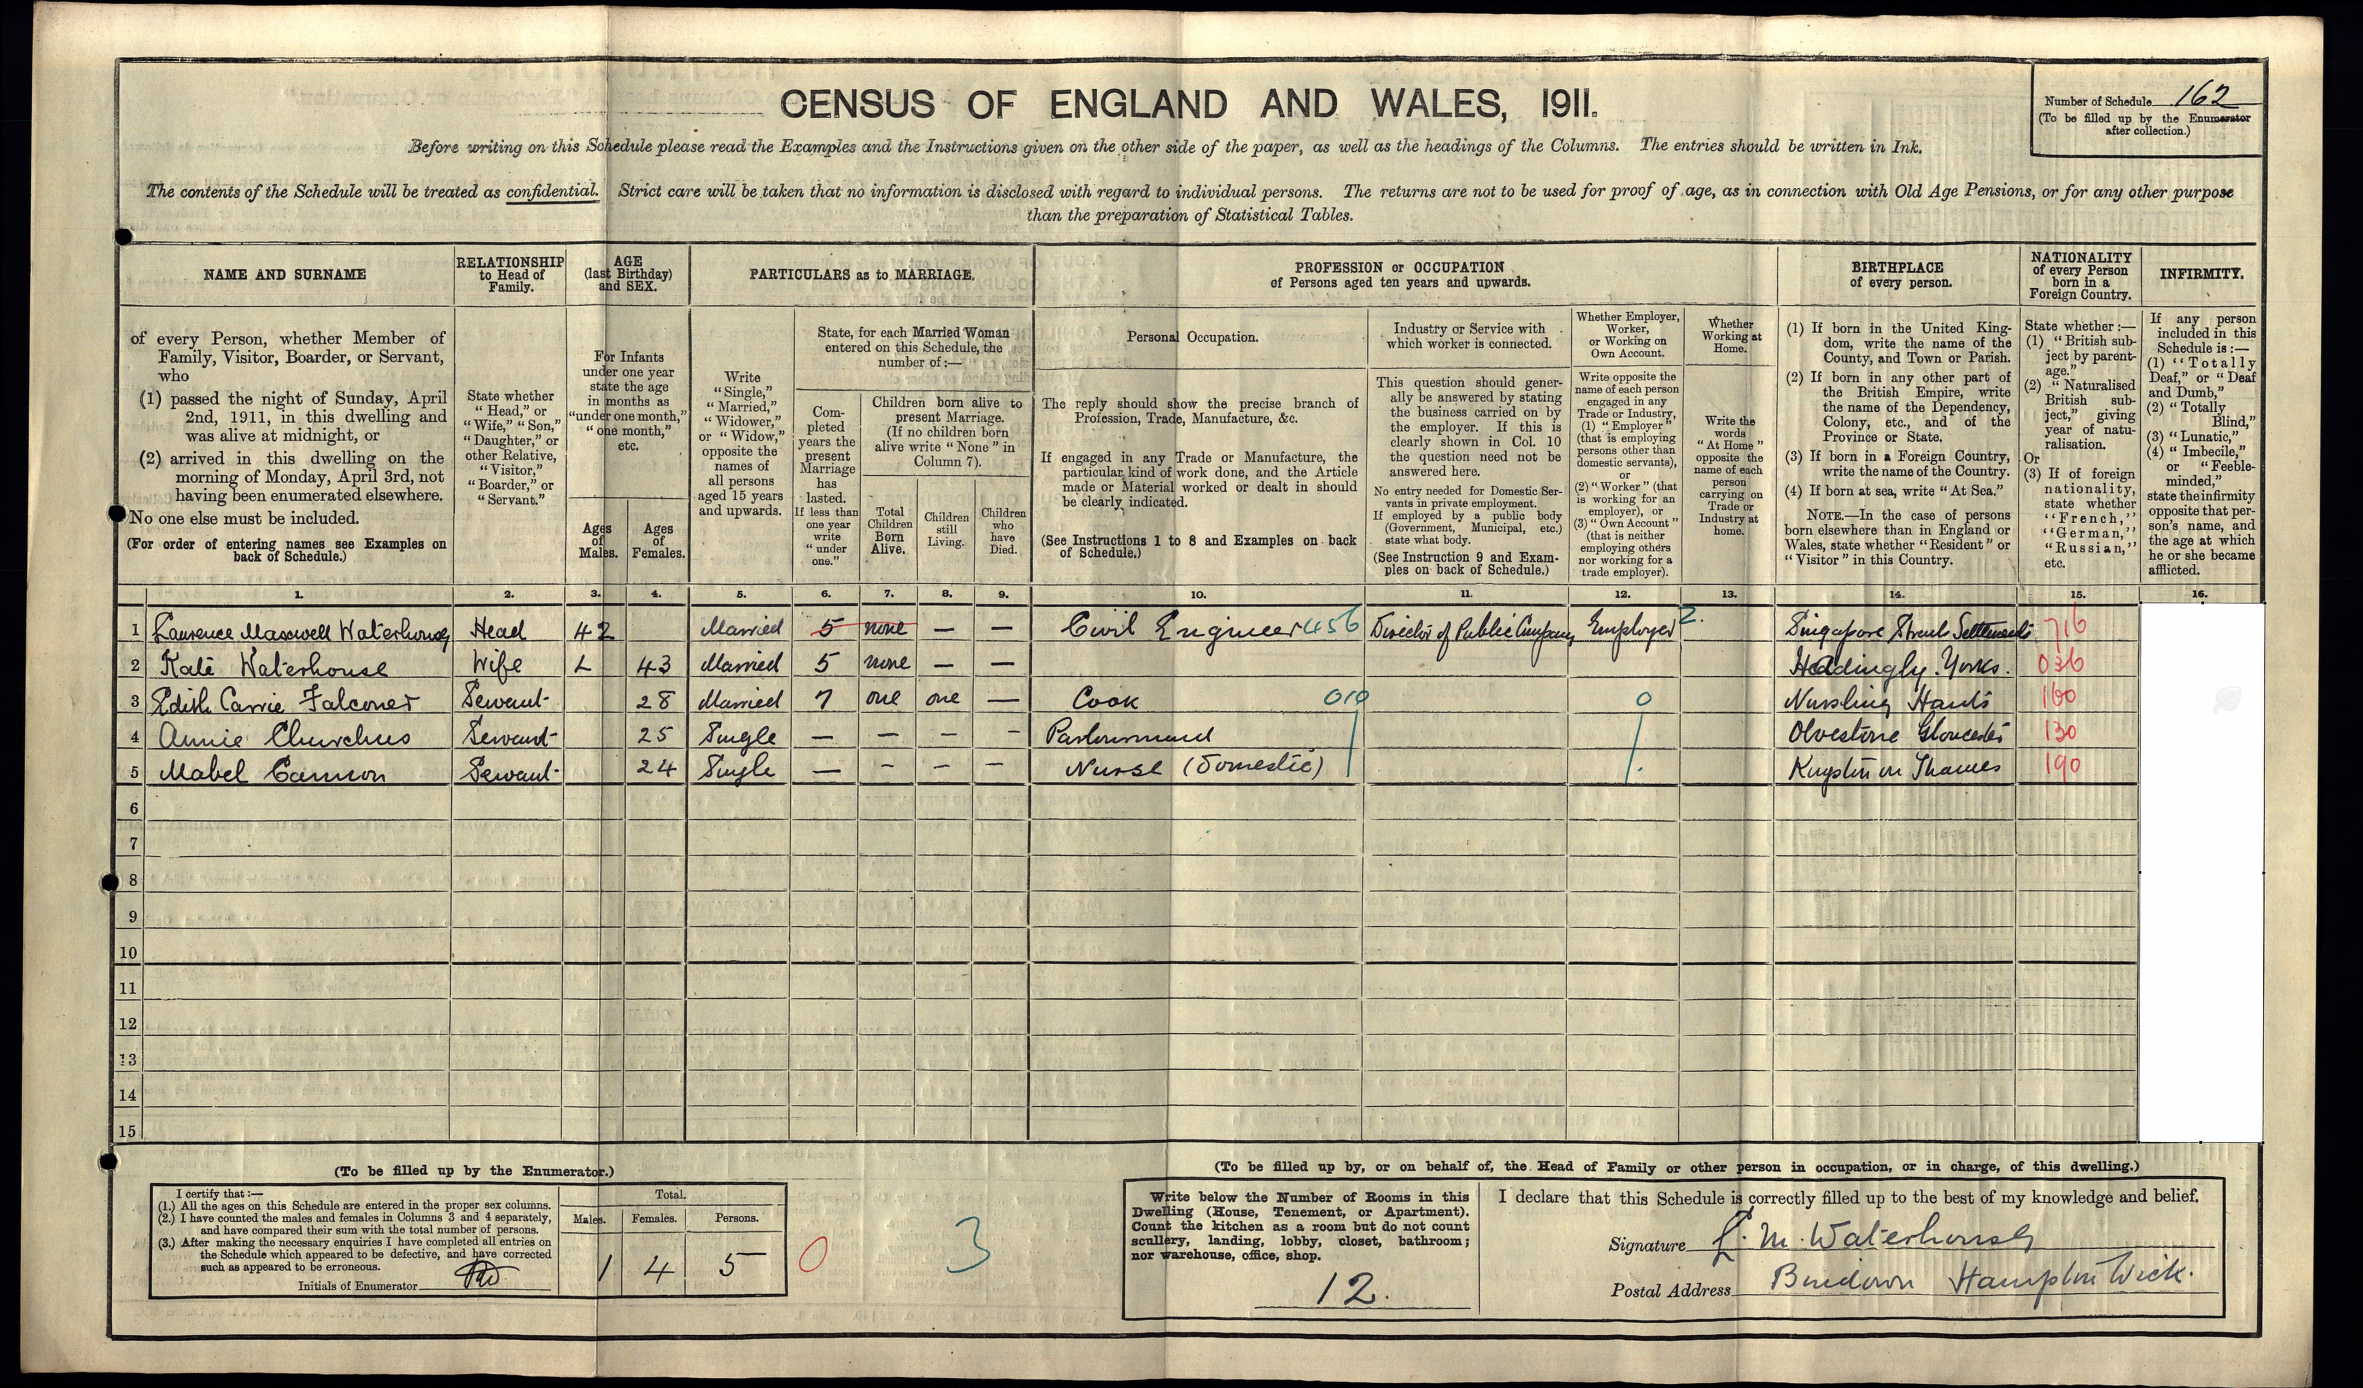 CENSUS OF ENGLAND AND WALES, 1911.
Number of Schedule 162
(To be filled up by the Enumerator
after collection.)
Before writing on this Schedule please read the Examples and the Instructions given on the other side of the paper, as well as the headings of the Columns. The entries should be written in Ink.
The contents of the Schedule will be treated as confidential. Strict care will be taken that no information is disclosed with regard to individual persons. The returns are not to be used for proof of age, as in connection with Old Age Pensions, or for any other purpose
than the preparation of Statistical Tables.
NAME AND SURNAME
RELATIONSHIP
to Head of
Family.
AGE
(last Birthday)
and SEX.
PARTICULARS as to MARRIAGE.
PROFESSION or OCCUPATION
of Persons aged ten years and upwards.
BIRTHPLACE
of every person.
NATIONALITY
of every Person
born in a
Foreign Country.
INFIRMITY.
of every Person, whether Member of
Family, Visitor, Boarder, or Servant,
who
(1) passed the night of Sunday, April
2nd, 1911, in this dwelling and
was alive at midnight, or
(2) arrived in this dwelling on the
morning of Monday, April 3rd, not
having been enumerated elsewhere.
No one else must be included.
(For order of entering names see Examples on
back of Schedule.)
State whether
"Head," or
"Wife," "Son,"
"Daughter," or
other Relative,
"Visitor,"
"Boarder," or
"Servant."
For Infants
under one year
state the age
in months as
"under one month,"
"one month,"
etc.
Ages
of
Males.
Ages
of
Females.
Write
"Single,"
"Married,"
"Widower,"
or "Widow,"
opposite the
names of
all persons
aged 15 years
and upwards.
State, for each Married Woman
entered on this Schedule, the
number of:—
Com-
pleted
years the
present
Marriage
has
lasted.
If less than
one year
write
"under
one."
Children born alive to
present Marriage.
(If no children born
alive write "None" in
Column 7).
Total
Children
Born
Alive.
Children
still
Living.
Children
who
have
Died.
Personal Occupation.
The reply should show the precise branch of
Profession, Trade, Manufacture, &c.
If engaged in any Trade or Manufacture, the
particular kind of work done, and the Article
made or Material worked or dealt in should
be clearly indicated.
(See Instructions 1 to 8 and Examples on back
of Schedule.)
Industry or Service with
which worker is connected.
This question should gener-
ally be answered by stating
the business carried on by
the employer. If this is
clearly shown in Col. 10
the question need not be
answered here.
No entry needed for Domestic Ser-
vants in private employment.
If employed by a public body
(Government, Municipal, etc.)
state what body.
(See Instruction 9 and Exam-
ples on back of Schedule.)
Whether Employer,
Worker,
or Working on
Own Account.
Write opposite the
name of each person
engaged in any
Trade or Industry,
(1) "Employer"
(that is employing
persons other than
domestic servants),
or
(2) "Worker" (that
is working for an
employer), or
(3) "Own Account"
(that is neither
employing others
nor working for a
trade employer).
Whether
Working at
Home.
Write the
words
"At Home"
opposite the
name of each
person
carrying on
Trade or
Industry at
home.
(1) If born in the United King-
dom, write the name of the
County, and Town or Parish.
(2) If born in any other part of
the British Empire, write
the name of the Dependency,
Colony, etc., and of the
Province or State.
(3) If born in a Foreign Country,
write the name of the Country.
(4) If born at sea, write "At Sea."
NOTE.—In the case of persons
born elsewhere than in England or
Wales, state whether "Resident" or
"Visitor" in this Country.
State whether:—
(1) "British sub-
ject by parent-
age."
(2) "Naturalised
British sub-
ject," giving
year of natu-
ralisation.
Or
(3) If of foreign
nationality,
state whether
"French,"
"German,"
"Russian,"
etc.
If any person
included in this
Schedule is:—
(1) "Totally
Deaf," or "Deaf
and Dumb,"
(2) "Totally
Blind,"
(3) "Lunatic,"
(4) "Imbecile,"
or "Feeble-
minded,"
state the infirmity
opposite that per-
son's name, and
the age at which
he or she became
afflicted.
1. 2. 3. 4. 5. 6. 7. 8. 9. 10. 11. 12. 13. 14. 15. 16.
1 Laurence Maxwell Waterhouse Head 42 Married 5 none — — Civil Engineer 456 Director of Public Company Employer 2. Singapore Straits Settlements 716
2 Kate Waterhouse Wife 43 Married 5 none — — Headingly. Yorks. 036
3 Edith Carrie Falconer Servant 28 Married 7 one one — Cook 010 0 Nursling Hants 160
4 Annie Churches Servant 25 Single — — — — Parlourmaid Olvestone Gloucester 130
5 Mabel Cannon Servant 24 Single — — — — Nurse (Domestic) Kingston on Thames 190
6
7
8
9
10
11
12
13
14
15
(To be filled up by the Enumerator.)
I certify that:—
(1.) All the ages on this Schedule are entered in the proper sex columns.
(2.) I have counted the males and females in Columns 3 and 4 separately,
and have compared their sum with the total number of persons.
(3.) After making the necessary enquiries I have completed all entries on
the Schedule which appeared to be defective, and have corrected
such as appeared to be erroneous.
Initials of Enumerator
Total.
Males. Females. Persons.
1 4 5
0 3
(To be filled up by, or on behalf of, the Head of Family or other person in occupation, or in charge, of this dwelling.)
Write below the Number of Rooms in this
Dwelling (House, Tenement, or Apartment).
Count the kitchen as a room but do not count
scullery, landing, lobby, closet, bathroom;
nor warehouse, office, shop.
12.
I declare that this Schedule is correctly filled up to the best of my knowledge and belief.
Signature L. M. Waterhouse
Postal Address Hampton Wick.